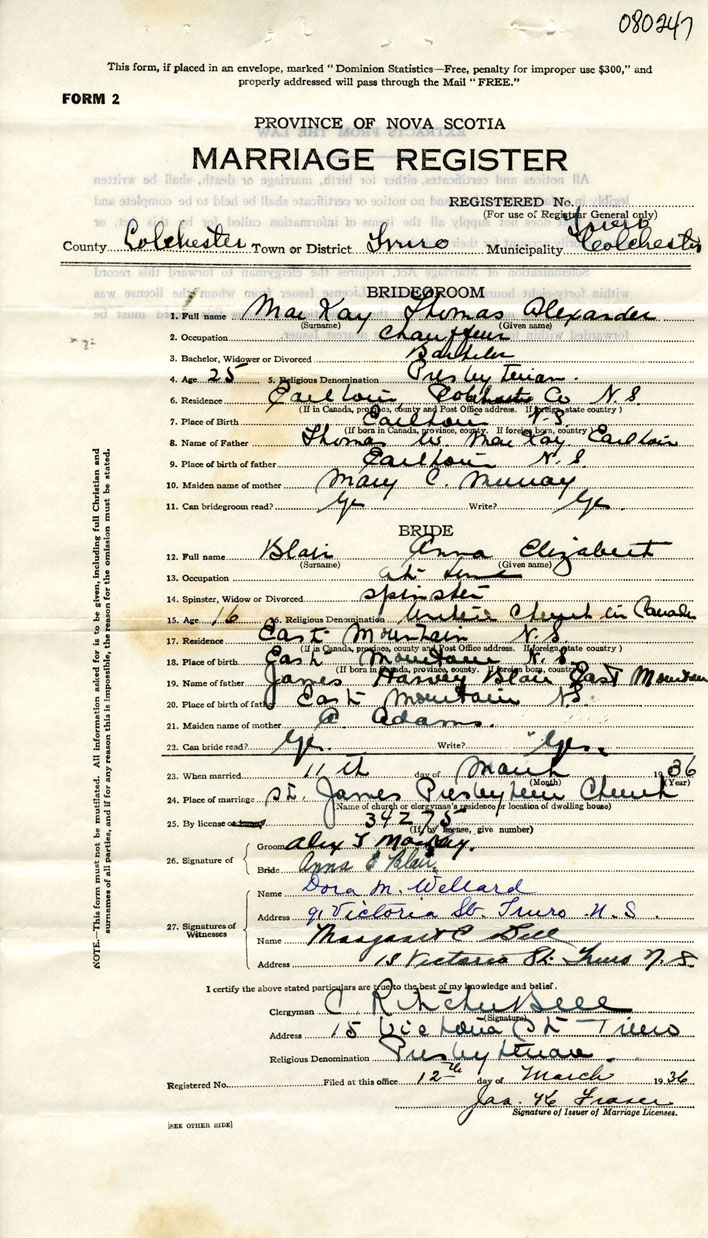 080247
This form, if placed in an envelope, marked "Dominion Statistics—Free, penalty for improper use $300," and
properly addressed will pass through the Mail "FREE."
FORM 2
PROVINCE OF NOVA SCOTIA
MARRIAGE REGISTER
REGISTERED No.
(For use of Registrar General only)
Truro
County Colchester Town or District Truro Municipality Colchester
BRIDEGROOM
1. Full name MacKay Thomas Alexander
(Surname) (Given name)
2. Occupation Chauffeur
3. Bachelor, Widower or Divorced Bachelor
4. Age 25 5. Religious Denomination Presbyterian.
6. Residence Earltown Colchester Co N.S.
(If in Canada, province, county and Post Office address. If foreign, state country)
7. Place of Birth Earltown N.S.
(If born in Canada, province, county. If foreign born, country)
8. Name of Father Thomas W. MacKay Earltown
9. Place of birth of father Earltown N.S.
10. Maiden name of mother Mary C. Murray
11. Can bridegroom read? Yes Write? Yes
BRIDE
12. Full name Blair Anna Elizabeth
(Surname) (Given name)
13. Occupation at home
14. Spinster, Widow or Divorced spinster
15. Age 16 16. Religious Denomination United Church in Canada
17. Residence East Mountain N.S.
(If in Canada, province, county and Post Office address. If foreign, state country)
18. Place of birth East Mountain N.S.
(If born in Canada, province, county. If foreign born, country)
19. Name of father James Harvey Blair East Mountain
20. Place of birth of father East Mountain NS.
21. Maiden name of mother Adams.
22. Can bride read? Yes. Write? Yes.
23. When married 11th day of March 1936
(Month) (Year)
24. Place of marriage St. James Presbyterian Church
(Name of church or clergyman's residence or location of dwelling house)
25. By license or 34275
(If by license, give number)
26. Signature of Groom Alex T MacKay.
Bride Anna E Blair
27. Signatures of Witnesses
Name Dora M. Wellard
Address 91 Victoria St. Truro N.S.
Name Margaret C Bell
Address 15 Victoria St. Truro N.S.
I certify the above stated particulars are true to the best of my knowledge and belief.
Clergyman C. Ritchie Bell
(Signature)
Address 15 Victoria St Truro
Religious Denomination Presbyterian.
Registered No. Filed at this office 12th day of March 1936
Jas. Fraser
Signature of Issuer of Marriage Licenses.
[SEE OTHER SIDE]
NOTE.—This form must not be mutilated. All information asked for is to be given, including full Christian and
surnames of all parties, and if for any reason this is impossible, the reason for the omission must be stated.